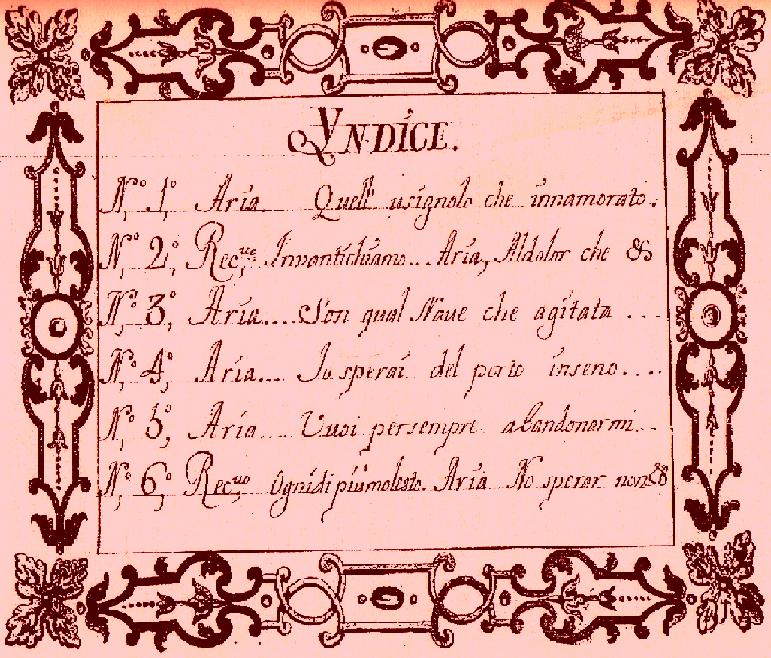 YNDÍCE.
N.º 1º Aria Quell' usignolo che innamorato.
N.º 2º Rec.vo Invanti chiamo... Aria, Al dolor che &
N.º 3º Aria.... Son qual Naue che agitata ...
N.º 4º Aria... Io sperai del porto inseno....
N.º 5º Aria.... Vuoi persempre abandonarmi...
N.º 6º Rec.vo Ognidi piu molesto. Aria No sperar non &